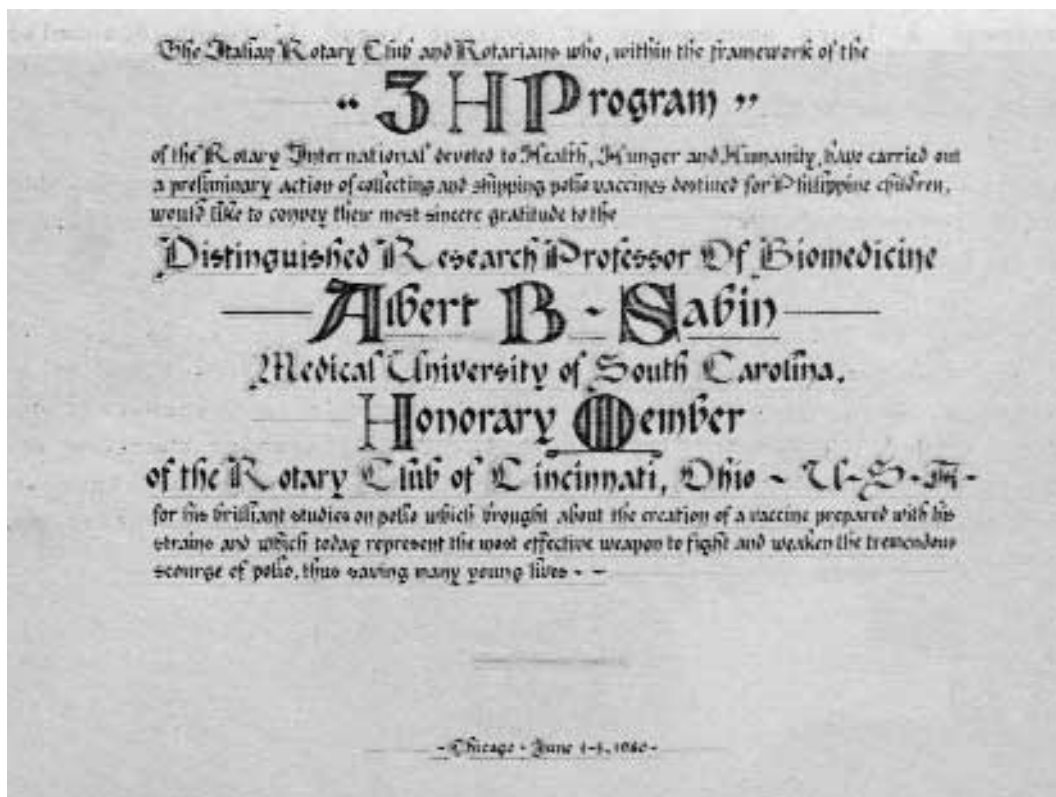 The Italian Rotary Club and Rotarians who, within the framework of the
“ 3 H Program ”
of the Rotary International devoted to Health, Hunger and Humanity, have carried out
a preliminary action of collecting and shipping polio vaccines destined for Philippine children,
would like to convey their most sincere gratitude to the
Distinguished Research Professor Of Biomedicine
Albert B - Sabin
Medical University of South Carolina.
Honorary Member
of the Rotary Club of Cincinnati, Ohio - U-S-A-
for his brilliant studies on polio which brought about the creation of a vaccine prepared with his
strains and which today represent the most effective weapon to fight and weaken the tremendous
scourge of polio, thus saving many young lives - -
- Chicago - June